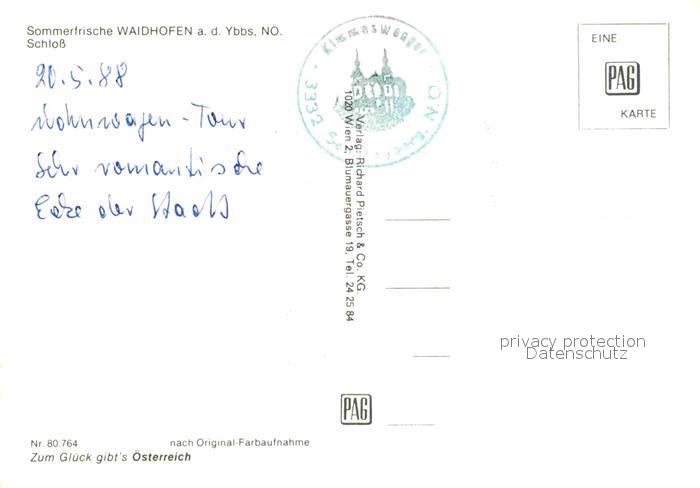 Sommerfrische WAIDHOFEN a. d. Ybbs, NÖ.
Schloß
20.5.88
Wohnwagen - Tour
Sehr romantische
Ecke der Stadt
3332
EINE
PAG
KARTE
Verlag: Richard Pietsch & Co. KG.
1020 Wien 2, Blumauergasse 19, Tel. 24 25 84
privacy protection
Datenschutz
PAG
Nr. 80.764 nach Original-Farbaufnahme
Zum Glück gibt's Österreich